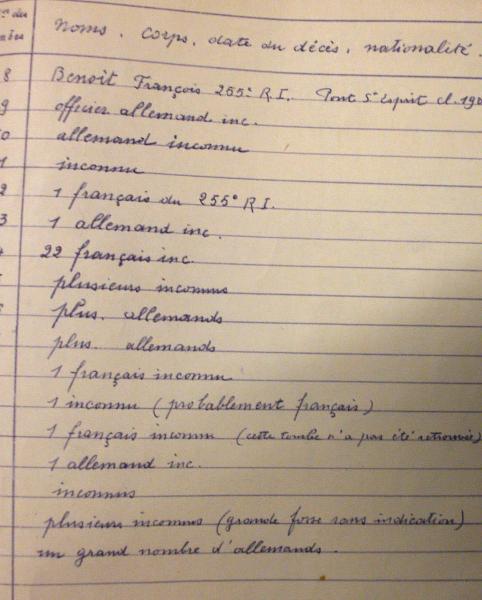 Noms, corps, date du décès, nationalité.
8 Benoît François 255e R I. Pont St Esprit cl. 190
9 officier allemand inc.
0 allemand inconnu
1 inconnu
2 1 français du 255e R I.
3 1 allemand inc.
22 français inc.
plusieurs inconnus
plus. allemands
plus. allemands
1 français inconnu
1 inconnu (probablement français)
1 français inconnu (cette tombe n'a pas été retrouvée)
1 allemand inc.
inconnus
plusieurs inconnus (grande fosse sans indication)
un grand nombre d'allemands.